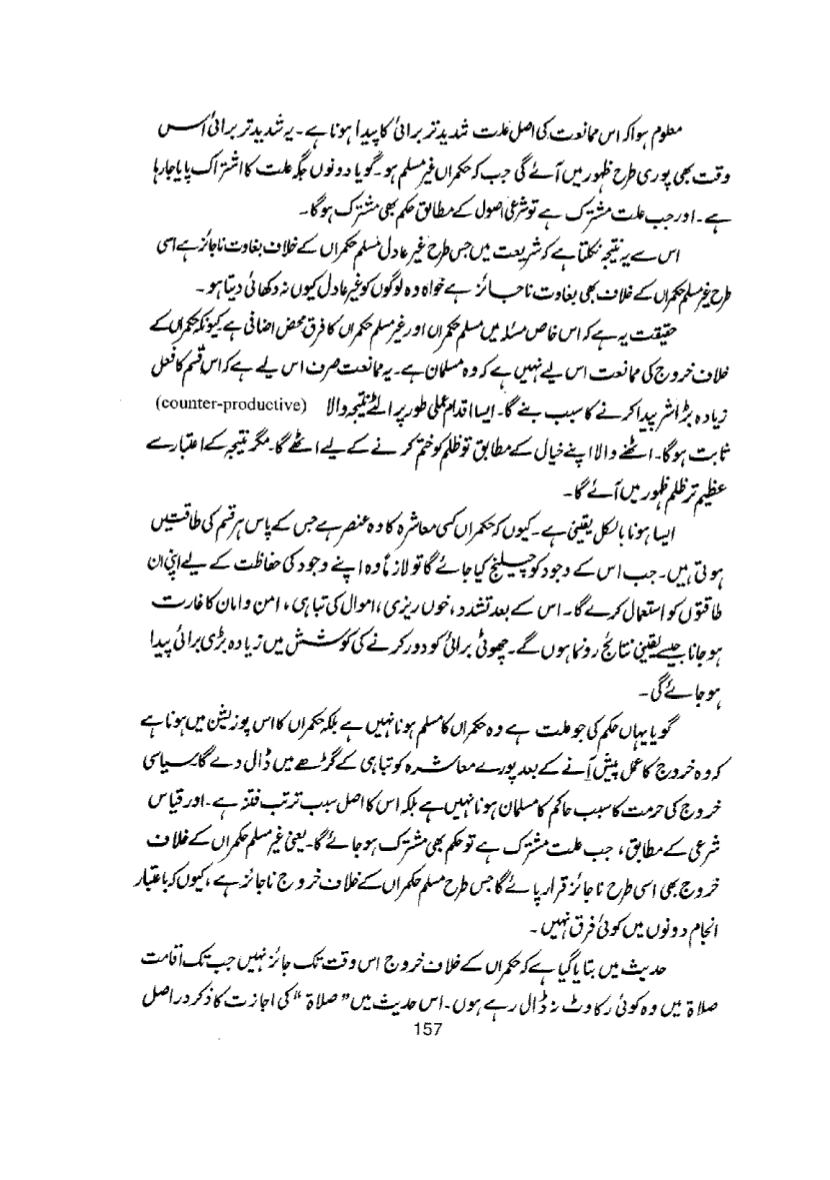 معلوم ہوا کہ اس ممانعت کی اصل علت شدید تر برائی کا پیدا ہونا ہے۔ یہ شدید تر برائی اُس
وقت بھی پوری طرح ظہور میں آئے گی جب کہ حکمراں غیر مسلم ہو۔ گویا دونوں جگہ علت کا اشتراک پایا جا رہا
ہے۔ اور جب علت مشترک ہے تو شرعی اصول کے مطابق حکم بھی مشترک ہوگا۔
اس سے یہ نتیجہ نکلتا ہے کہ شریعت میں جس طرح غیر عادل مسلم حکمراں کے خلاف بغاوت ناجائز ہے اسی
طرح غیر مسلم حکمراں کے خلاف بھی بغاوت ناجائز ہے خواہ وہ لوگوں کو غیر عادل کیوں نہ دکھائی دیتا ہو۔
حقیقت یہ ہے کہ اس خاص مسئلہ میں مسلم حکمراں اور غیر مسلم حکمراں کا فرق محض اضافی ہے کیونکہ حکمراں کے
خلاف خروج کی ممانعت اس لیے نہیں ہے کہ وہ مسلمان ہے۔ یہ ممانعت صرف اس لیے ہے کہ اس قسم کا فعل
زیادہ بڑا شر پیدا کرنے کا سبب بنے گا۔ ایسا اقدام عملی طور پر الٹے نتیجہ والا (counter-productive)
ثابت ہوگا۔ اٹھنے والا اپنے خیال کے مطابق تو ظلم کو ختم کرنے کے لیے اٹھے گا۔ مگر نتیجہ کے اعتبار سے
عظیم تر ظلم ظہور میں آئے گا۔
ایسا ہونا بالکل یقینی ہے۔ کیوں کہ حکمراں کسی معاشرہ کا وہ عنصر ہے جس کے پاس ہر قسم کی طاقتیں
ہوتی ہیں۔ جب اس کے وجود کو چیلنج کیا جائے گا تو لازماً وہ اپنے وجود کی حفاظت کے لیے اپنی ان
طاقتوں کو استعمال کرے گا۔ اس کے بعد تشدد، خوں ریزی، اموال کی تباہی، امن و امان کا غارت
ہو جانا جیسے یقینی نتائج رونما ہوں گے۔ چھوٹی برائی کو دور کرنے کی کوشش میں زیادہ بڑی برائی پیدا
ہو جائے گی۔
گویا یہاں حکم کی جو علت ہے وہ حکمراں کا مسلم ہونا نہیں ہے بلکہ حکمراں کا اس پوزیشن میں ہونا ہے
کہ وہ خروج کا عمل پیش آنے کے بعد پورے معاشرہ کو تباہی کے گڑھے میں ڈال دے گا۔ سیاسی
خروج کی حرمت کا سبب حاکم کا مسلمان ہونا نہیں ہے بلکہ اس کا اصل سبب ترتب فتنہ ہے۔ اور قیاس
شرعی کے مطابق، جب علت مشترک ہے تو حکم بھی مشترک ہو جائے گا۔ یعنی غیر مسلم حکمراں کے خلاف
خروج بھی اسی طرح ناجائز قرار پائے گا جس طرح مسلم حکمراں کے خلاف خروج ناجائز ہے، کیوں کہ باعتبار
انجام دونوں میں کوئی فرق نہیں۔
حدیث میں بتایا گیا ہے کہ حکمراں کے خلاف خروج اس وقت تک جائز نہیں جب تک اقامت
صلاۃ میں وہ کوئی رکاوٹ نہ ڈال رہے ہوں۔ اس حدیث میں "صلاۃ" کی اجازت کا ذکر دراصل
157